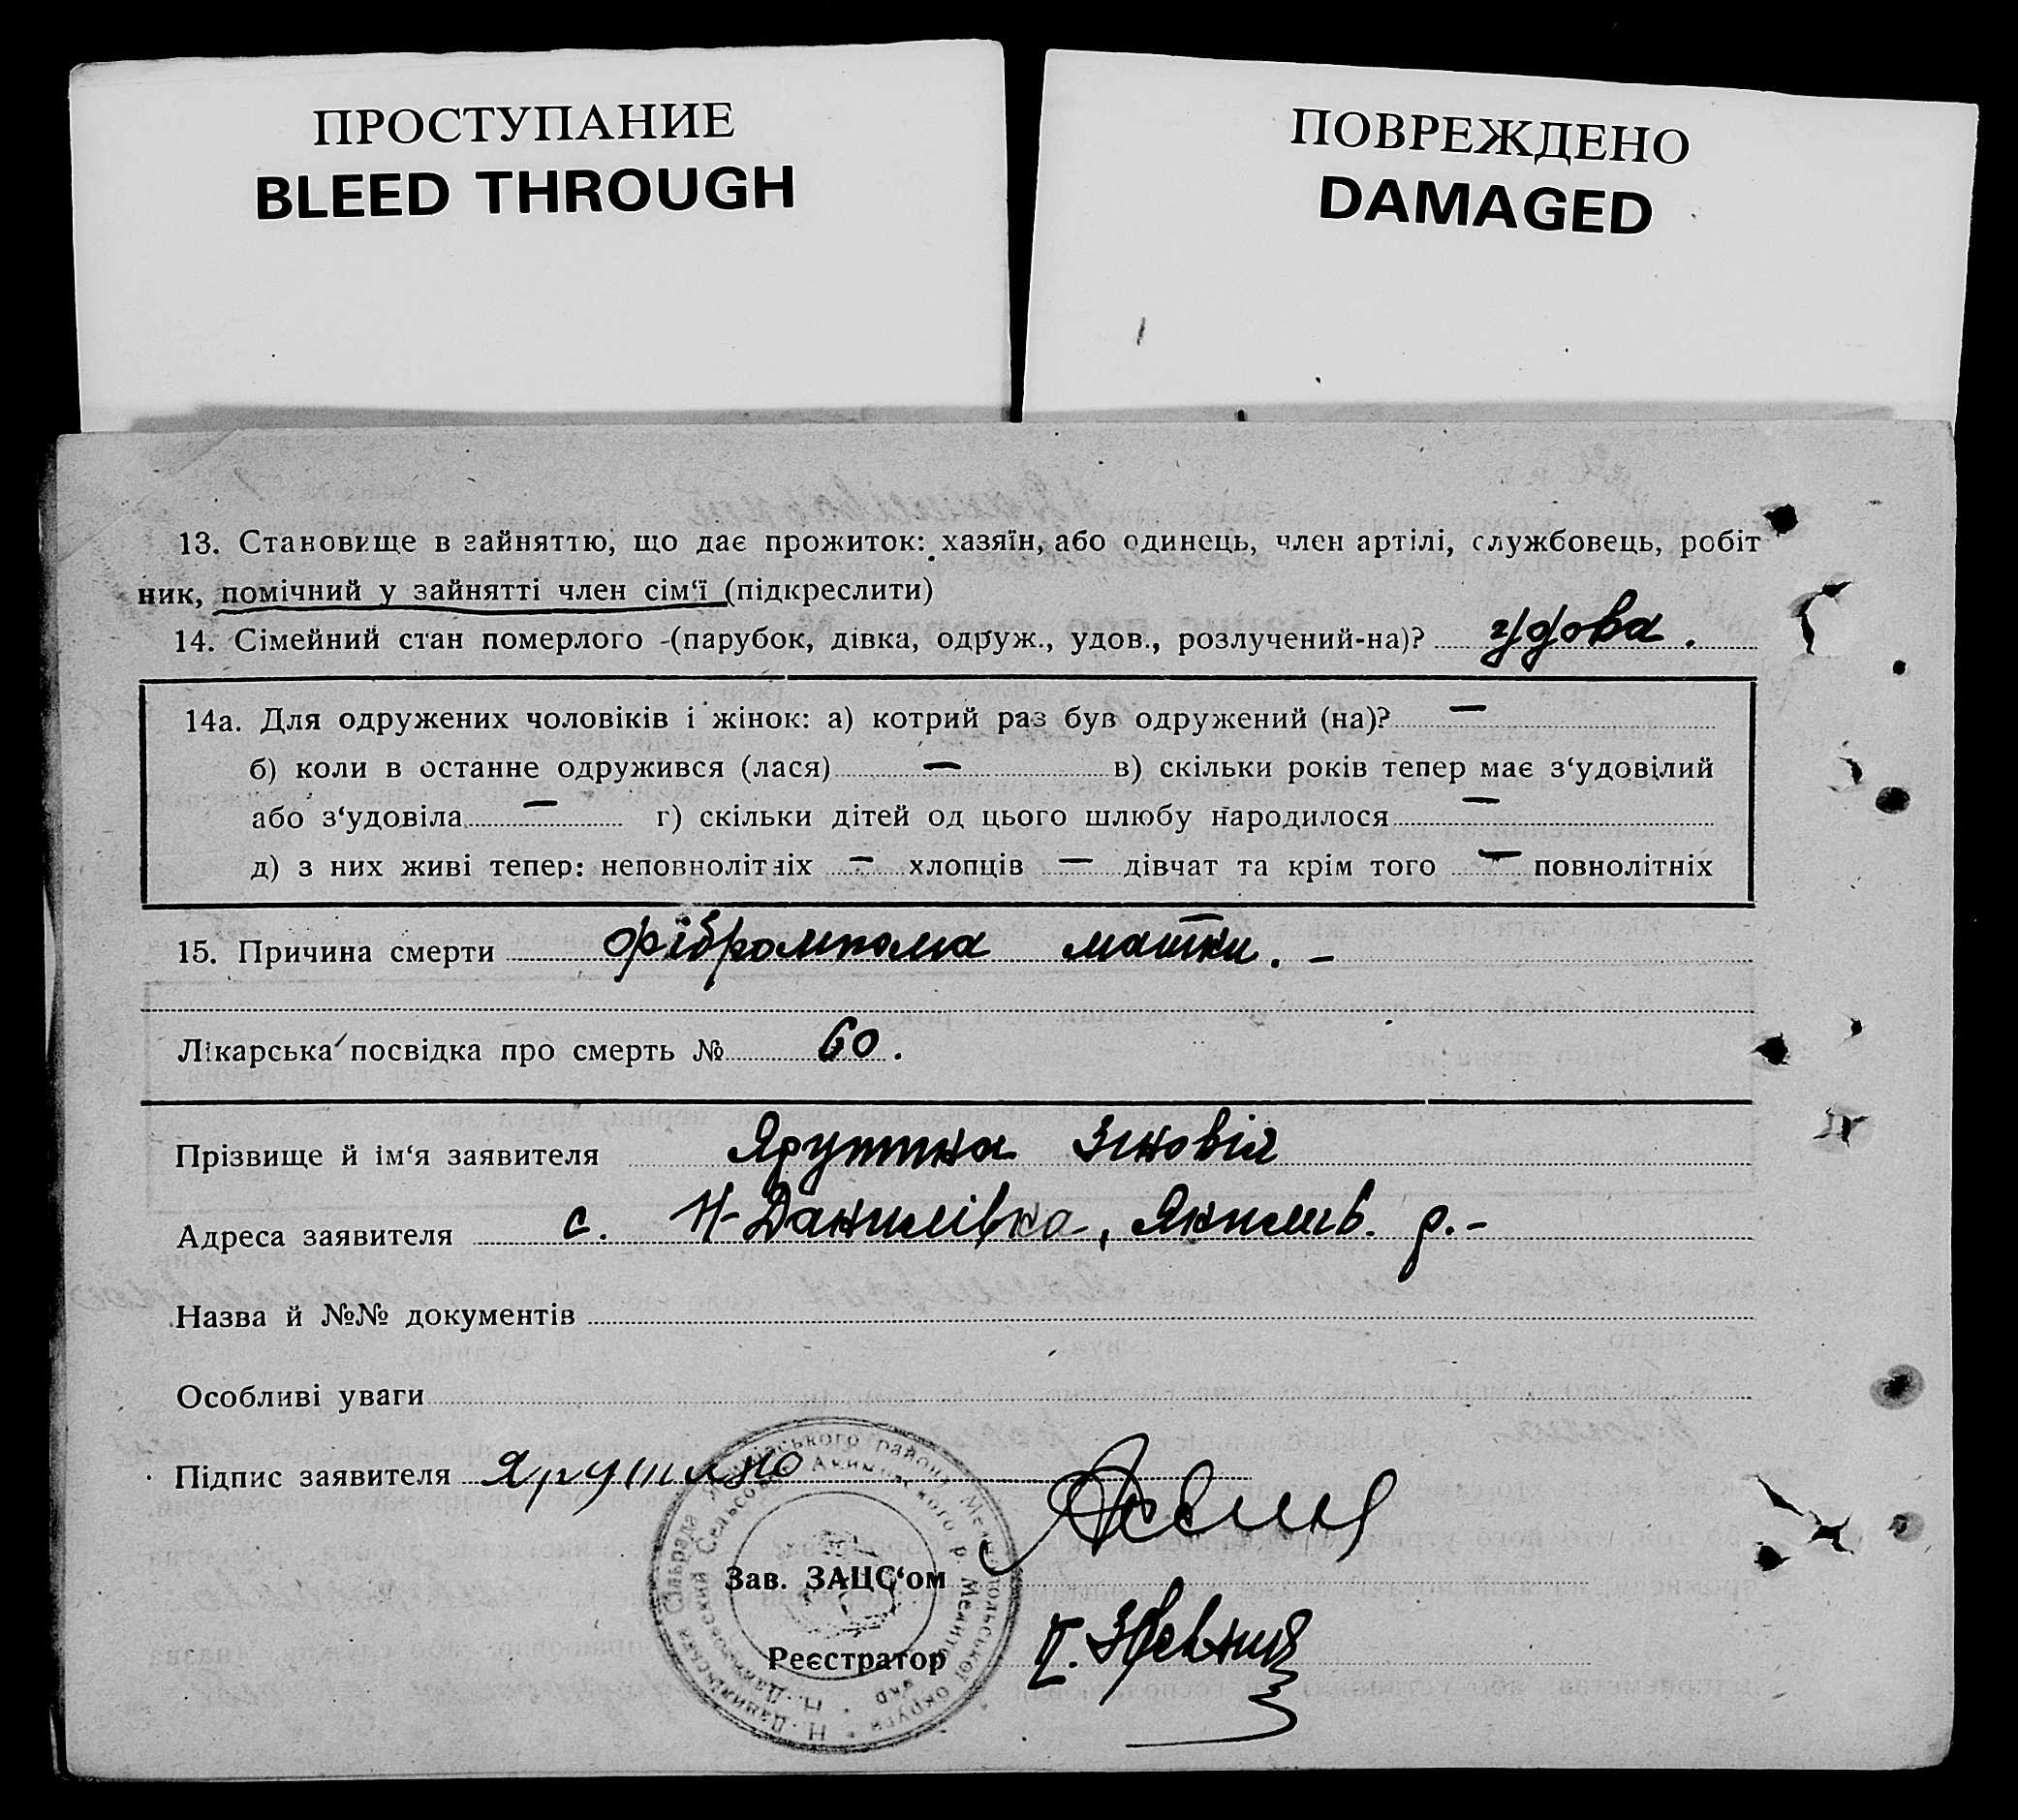 ПРОСТУПАНИЕ
BLEED THROUGH
ПОВРЕЖДЕНО
DAMAGED
13. Становище в зайняттю, що дає прожиток: хазяїн, або одинець, член артілі, службовець, робіт
ник, помічний у зайнятті член сім‘ї (підкреслити)
14. Сімейний стан померлого -(парубок, дівка, одруж., удов., розлучений-на)? удова.
14а. Для одружених чоловіків і жінок: а) котрий раз був одружений (на)? —
б) коли в останне одружився (лася) — в) скільки років тепер має з‘удовілий
або з‘удовіла — г) скільки дітей од цього шлюбу народилося —
д) з них живі тепер: неповнолітніх — хлопців — дівчат та крім того — повнолітніх
15. Причина смерти фіброміома матки. –
Лікарська посвідка про смерть № 60.
Прізвище й ім‘я заявителя Зіновія
Адреса заявителя с. Н-Данилівка, Якимів. р.–
Назва й №№ документів
Особливі уваги
Підпис заявителя
Зав. ЗАЦС‘ом
Реєстратор